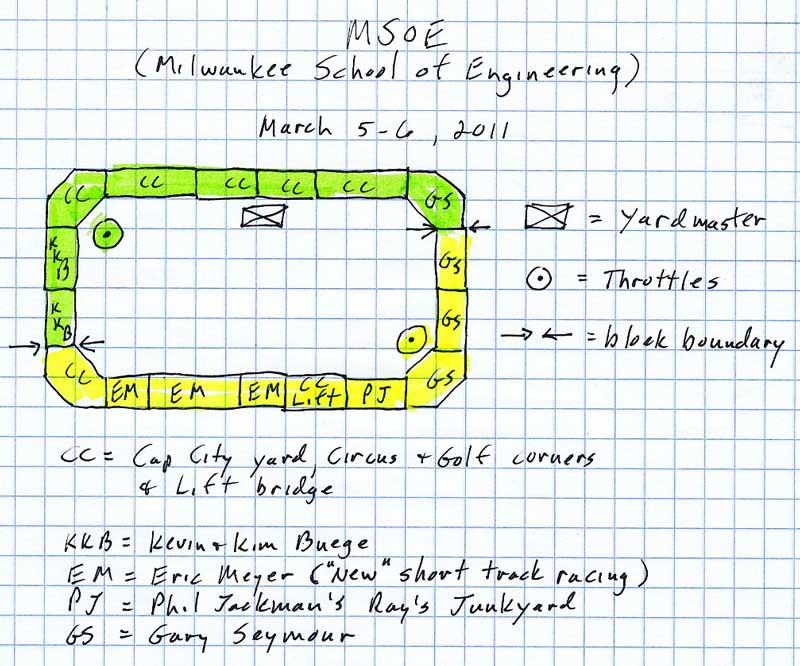 MSOE
(Milwaukee School of Engineering)
March 5-6, 2011
CC CC CC CC CC GS
KKB GS
KKB GS
CC EM EM EM CC Lift PJ GS
= Yardmaster
= Throttles
→ ← = block boundary
CC = Cap City yard, Circus + Golf corners
& Lift bridge
KKB = Kevin + Kim Buege
EM = Eric Meyer ("New" short track racing)
PJ = Phil Jackman's Ray's Junkyard
GS = Gary Seymour